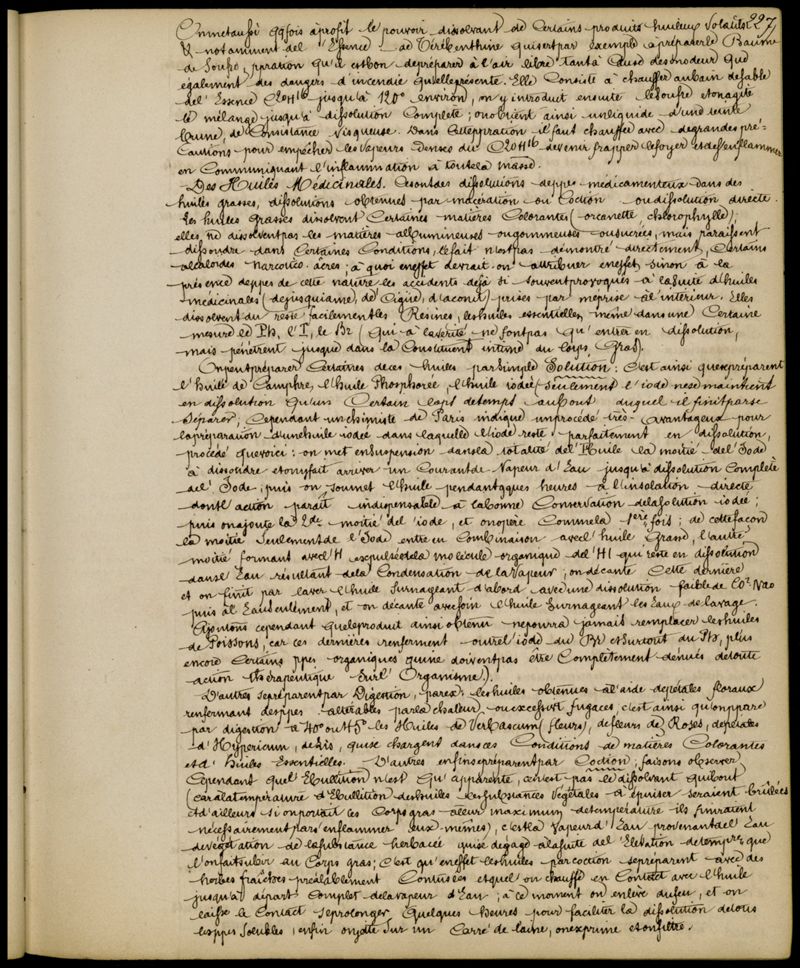 On met aussi qqfois à profit le pouvoir dissolvant de certains produits huileux volatils 227
& notamment de l'Essence de Térébenthine qui sert par exemple à préparer le Baume
de Soufre, pration qu'il est bon de préparer à l'air libre tant à cause de son odeur que
également des dangers d'incendie qu'elle présente. Elle consiste à chauffer au bain de sable
de l'Essence C20H16 jusqu'à 120° environ, on y introduit ensuite le soufre et on agite
le mélange jusqu'à dissolution complète; on obtient ainsi un liquide d'une teinte
brune, de consistance visqueuse. Dans cette ppration il faut chauffer avec de grandes pré-
cautions pour empêcher les vapeurs denses du C20H16 de venir frapper le foyer et de s'enflammer
en communiquant l'inflammation à toute la masse.
Des Huiles Médicinales. Ce sont des dissolutions de ppes médicamenteux dans des
huiles grasses, dissolutions obtenues par macération ou coction ou dissolution directe.
Les huiles grasses dissolvent certaines matières colorantes (orcanette, chlorophylle);
elles ne dissolvent pas les matières albumineuses ou gommeuses ou sucrées, mais paraissent
dissoudre dans certaines conditions, le fait n'est pas démontré directement, certains
alcaloïdes narcotico-âcres; à quoi en effet devrait-on attribuer en effet, sinon à la
présence de ppes de cette nature les accidents déjà si souvent provoqués à la suite d'huiles
médicinales (de jusquiame, de ciguë, d'aconit) prises par méprise à l'intérieur. Elles
dissolvent du reste facilement les Résines, les huiles essentielles, même dans une certaine
mesure le Ph, l'I, le Br (qui à la vérité ne font pas qu'entrer en dissolution,
mais pénètrent jusque dans la constitution intime du corps gras).
On peut préparer certaines de ces huiles par simple Solution: c'est ainsi que se préparent
l'huile de Camphre, l'huile Phosphorée, l'huile iodée (seulement l'iode ne se maintient
en dissolution qu'un certain laps de temps au bout duquel il finit par se
séparer; cependant un chimiste de Paris indique un procédé très avantageux pour
la préparation d'une huile iodée dans laquelle l'iode reste parfaitement en dissolution,
procédé que voici: on met en suspension dans la totalité de l'Huile la moitié de l'Iode
à dissoudre et on y fait arriver un courant de vapeur d'Eau jusqu'à dissolution complète
de l'Iode, puis on soumet l'huile pendant qques heures à l'insolation directe
dont l'action paraît indispensable à la bonne conservation de la solution iodée;
puis on ajoute la 2de moitié de l'iode, et on opère comme la 1ère fois; de cette façon
la moitié seulement de l'Iode entre en combinaison avec l'huile grasse, l'autre
moitié formant avec l'H expulsé de la molécule organique de l'HI qui reste en dissolution
dans l'Eau résultant de la condensation de la vapeur; on décante cette dernière
et on finit par laver l'huile surnageant d'abord avec une dissolution faible de CO2 NaO
puis à l'Eau seulement, et on décante avec soin l'huile surnageant les Eaux de lavage.
Ajoutons cependant que le produit ainsi obtenu ne pourra jamais remplacer les huiles
de Poissons, car ces dernières renferment outre l'iode du Br et surtout du Ph, plus
encore certains ppes organiques qui ne doivent pas être complètement dénués de toute
action thérapeutique sur l'Organisme).
D'autres se préparent par Digestion, par ex. les huiles obtenues à l'aide de pétales floraux
renfermant des ppes altérables par la chaleur ou excessivt fugaces, c'est ainsi qu'on ppare
par digestion à 40° ou 45° les Huiles de Verbascum (fleurs), de fleurs de Roses, de pétales
d'Hypericum, de Lis, qui se chargent dans ces conditions de matières colorantes
et d'Huiles Essentielles. D'autres enfin se préparent par Coction; faisons observer
cependant que l'Ebullition n'est qu'apparente, ce n'est pas le dissolvant qui bout
(car à la température d'Ebullition des huiles les substances végétales à épuiser seraient brûlées
et d'ailleurs si on portait ces corps gras à leur maximum de température ils finiraient
nécessairement par s'enflammer eux-mêmes), c'est la vapeur d'Eau provenant de l'Eau
de végétation de la substance herbacée qui se dégage à la suite de l'Elévation de tempre que
l'on fait subir au corps gras; c'est qu'en effet les huiles par coction se préparent avec des
herbes fraîches préalablement contusées et que l'on chauffe en contact avec l'huile
jusqu'à départ complet de la vapeur d'Eau; à ce moment on enlève du feu, et on
laisse le contact se prolonger quelques heures pour faciliter la dissolution de tous
les ppes solubles; enfin on jette sur un carré de laine, on exprime et on filtre.